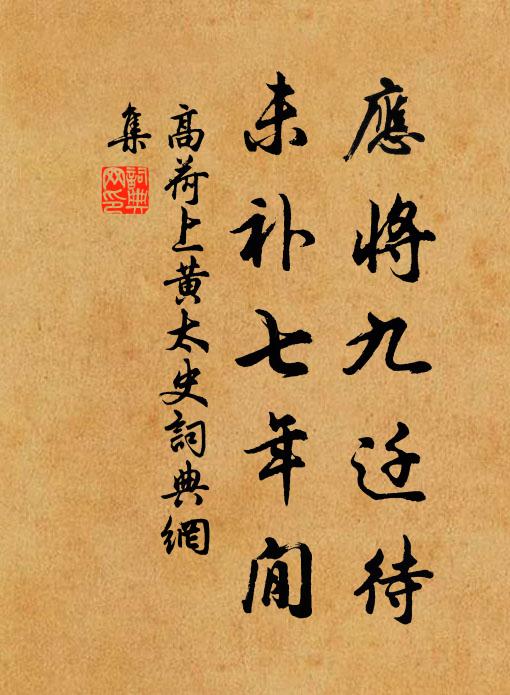 應將九迁待
未补七年閒
高荷上黄太史詞典網
集
詞典
网印